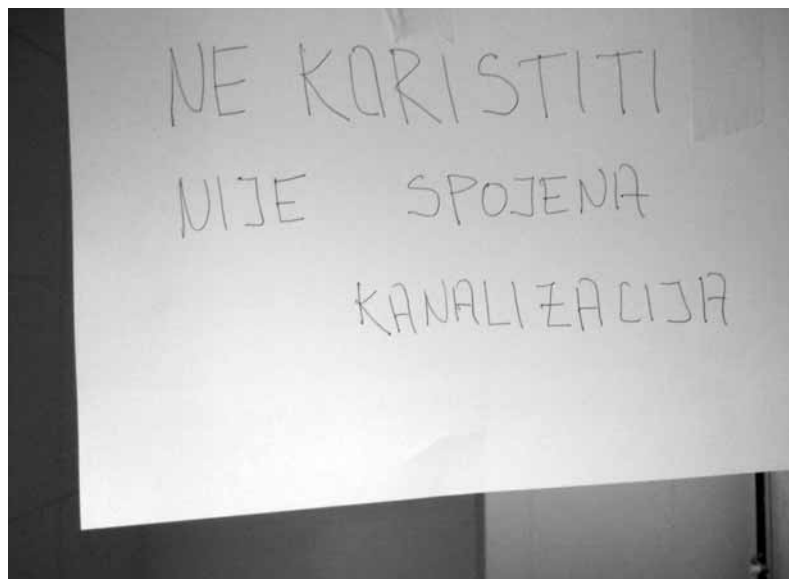 NE KORISTITI
NIJE SPOJENA
KANALIZACIJA